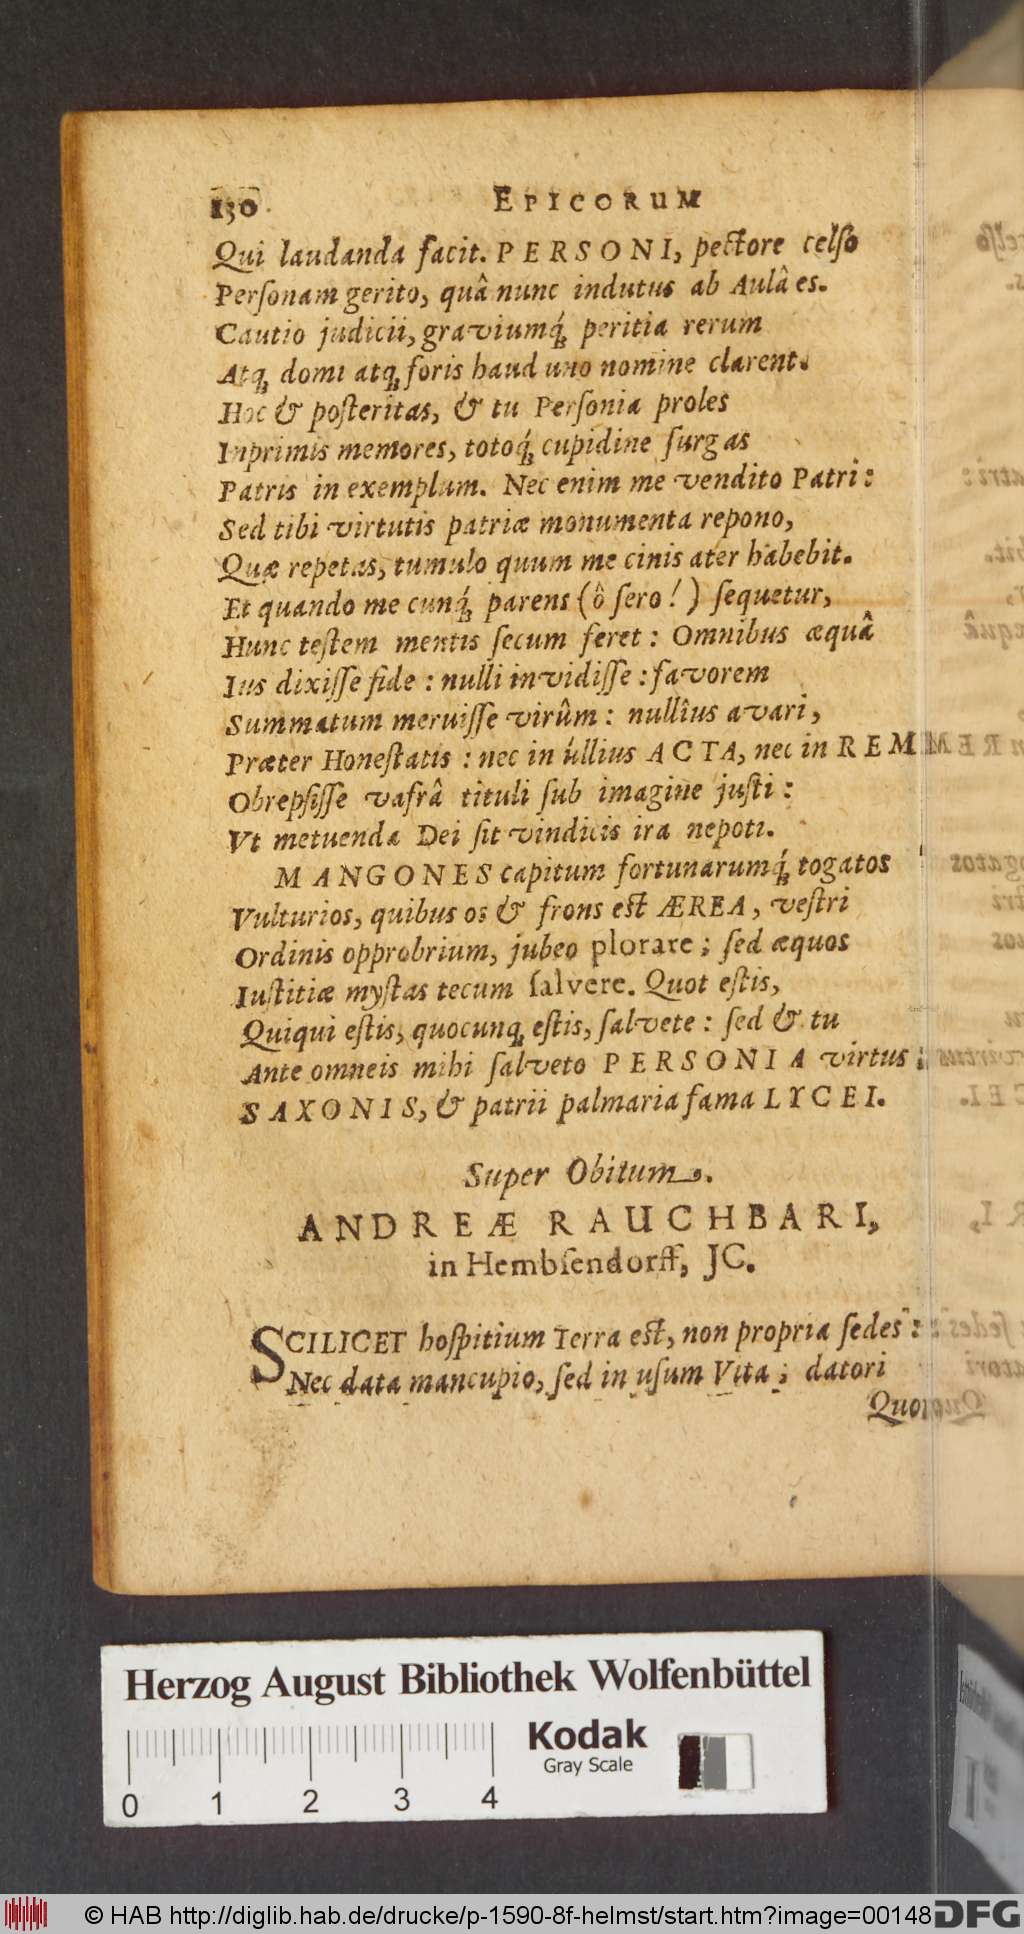 130 EPICORUM
Qui laudanda facit. PERSONI, pectore celſo
Perſonam gerito, quâ nunc indutus ab Aulâ es.
Cautio judicii, graviumq́; peritia rerum
Atq; domi atq; foris haud uno nomine clarent.
Hoc & poſteritas, & tu Perſonia proles
Inprimis memores, totoq́; cupidine ſurgas
Patris in exemplum. Nec enim me vendito Patri:
Sed tibi virtutis patriæ monumenta repono,
Quæ repetas, tumulo quum me cinis ater habebit.
Et quando me cunq́; parens (ô ſero!) ſequetur,
Hunc teſtem mentis ſecum feret: Omnibus æquâ
Ius dixiſſe fide: nulli invidiſſe: favorem
Summatum meruiſſe virûm: nullîus avari,
Præter Honeſtatis: nec in úllius ACTA, nec in REM
Obrepſiſſe vafrâ tituli ſub imagine juſti:
Vt metuenda Dei ſit vindicis ira nepoti.
MANGONES capitum fortunarumq́; togatos
Vulturios, quibus os & frons eſt ÆREA, veſtri
Ordinis opprobrium, jubeo plorare; ſed æquos
Iuſtitiæ myſtas tecum ſalvere. Quot eſtis,
Quiqui eſtis, quocunq; eſtis, ſalvete: ſed & tu
Ante omneis mihi ſalveto PERSONIA virtus;
SAXONIS, & patrii palmaria fama LYCEI.
Super Obitum.
ANDREÆ RAUCHBARI,
in Hembſendorff, JC.
SCILICET hoſpitium Terra eſt, non propria ſedes:
Nec data mancupio, ſed in uſum Vita; datori
Herzog August Bibliothek Wolfenbüttel
Kodak
Gray Scale
0 1 2 3 4
© HAB http://diglib.hab.de/drucke/p-1590-8f-helmst/start.htm?image=00148
DFG